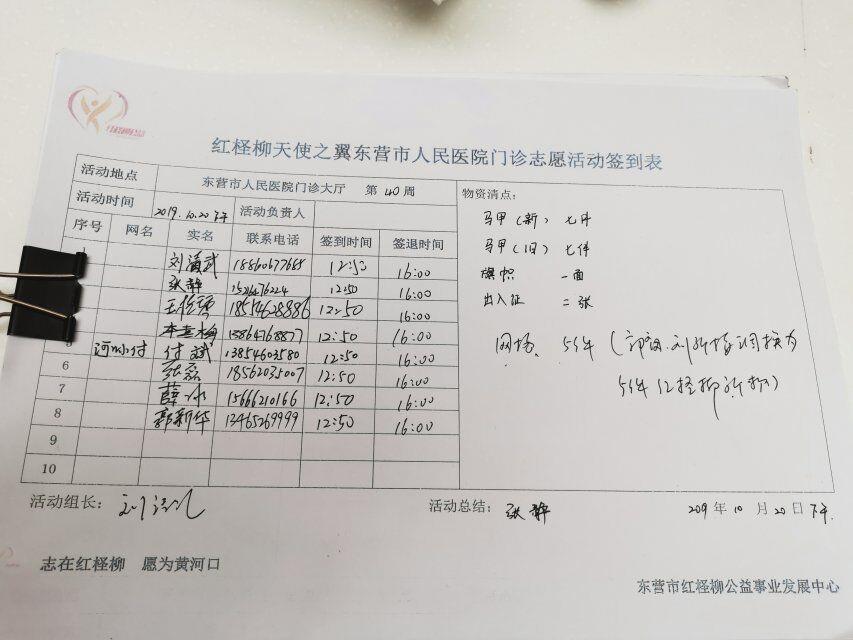 红柽柳天使之翼东营市人民医院门诊志愿活动签到表
活动地点 东营市人民医院门诊大厅 第40周
活动时间 2019.10.20下午 活动负责人
序号 网名 实名 联系电话 签到时间 签退时间
18860677688 12:50 16:00
张静 12:50 16:00
18514628886 12:50 16:00
13864768877 12:50 16:00
付斌 13854603580 12:50 16:00
6 张磊 18562035007 12:50 16:00
7 薛冰 15666210166 12:50 16:00
8 郭新华 13465269999 12:50 16:00
9
10
物资清点:
马甲(新) 七件
马甲(旧) 七件
旗帜 一面
出入证 二张
活动组长:
活动总结: 张静
209年10月20日下午.
志在红柽柳 愿为黄河口
东营市红柽柳公益事业发展中心